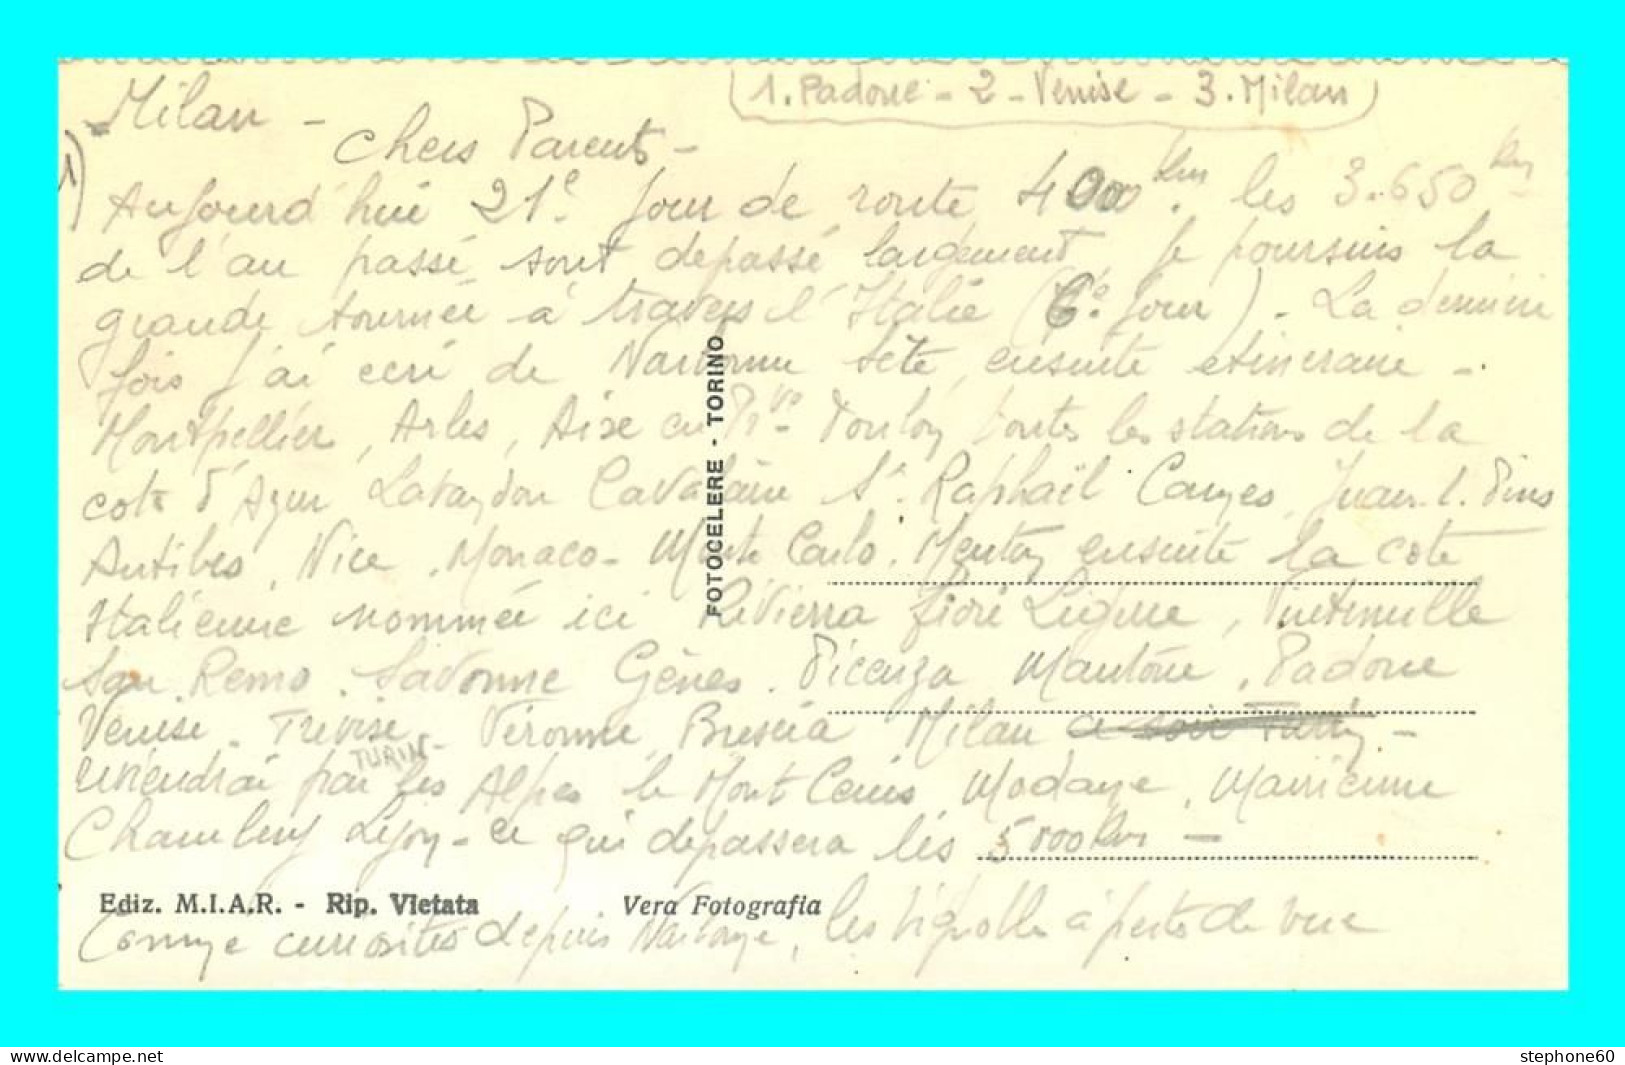 (1. Padoue - 2 - Venise - 3. Milan)
Milan -
1)
Chers Parents -
Aujourd'hui 21e Jour de route 4000 km. les 3.650 km
de l'an passé sont depassé largement, Je poursuis la
grande tournée à travers l'Italie (6e Jour) - La derniere
fois J'ai ecri de Narbonne Sète, ensuite etineraire -
Montpellier, Arles, Aixe en Pr ce Toulon toutes les stations de la
cote d'Azur Lavandou Cavalaire St. Raphaël Cannes, Juan-l. Pins
Antibes, Nice, Monaco - Monte Carlo. Menton ensuite la cote
Italienne nommée ici Rivierra fiori Ligure, Vintimille
San Remo. Savonne Gênes. Picenza Mantoue, Padoue
Venise - Trevise - Veronne, Brescia Milan ce soir Turin -
TURIN
reviendrai par les Alpes le Mont Cenis, Modane, Maurienne
Chambery Lyon - ce qui depassera les 5000 km -
Comme curiosités depuis Narbonne, les vignobles à perte de vue
FOTOCELERE - TORINO
Ediz. M.I.A.R. - Rip. Vietata
Vera Fotografia
www.delcampe.net
stephone60